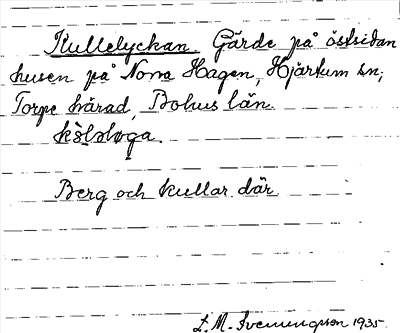 Kullelyckan. Gärde på östsidan
husen på Norra Hagen, Hjärtum sn,
Torpe härad, Bohus län.
Berg och kullar där
L. M. Svenungsson 1935.